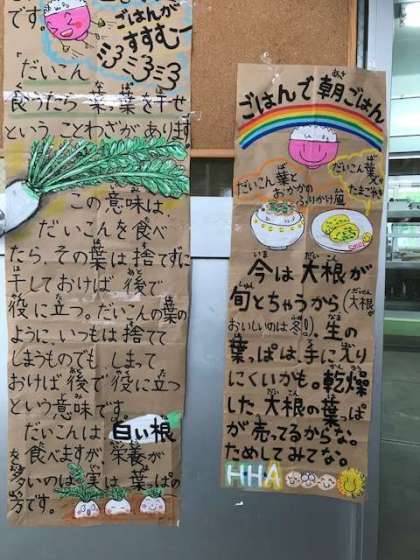 です。
ごはんが
すすむ〜
「だいこん
食うたら菜っ葉を干せ」
ということわざがあります。
この意味は、
だいこんを食べ
たら、その葉は捨てずに
干しておけば後で
役に立つ。だいこんの葉の
ように、いつもは捨てて
しまうものでも しまって
おけば後で役に立つ
という意味です。
だいこんは、白い根
を食べますが、栄養が
多いのは、実は葉っぱの
方です。
ごはんで朝ごはん
だいこん葉と
おかかの
ふりかけ風
だいこん葉と
たまごやき
今は大根が
旬とちゃうから(大根が
おいしいのは冬!)、生の
葉っぱは、手に入り
にくいかも。乾燥
した大根の葉っぱ
が売ってるからな。
ためしてみてな。
HHA